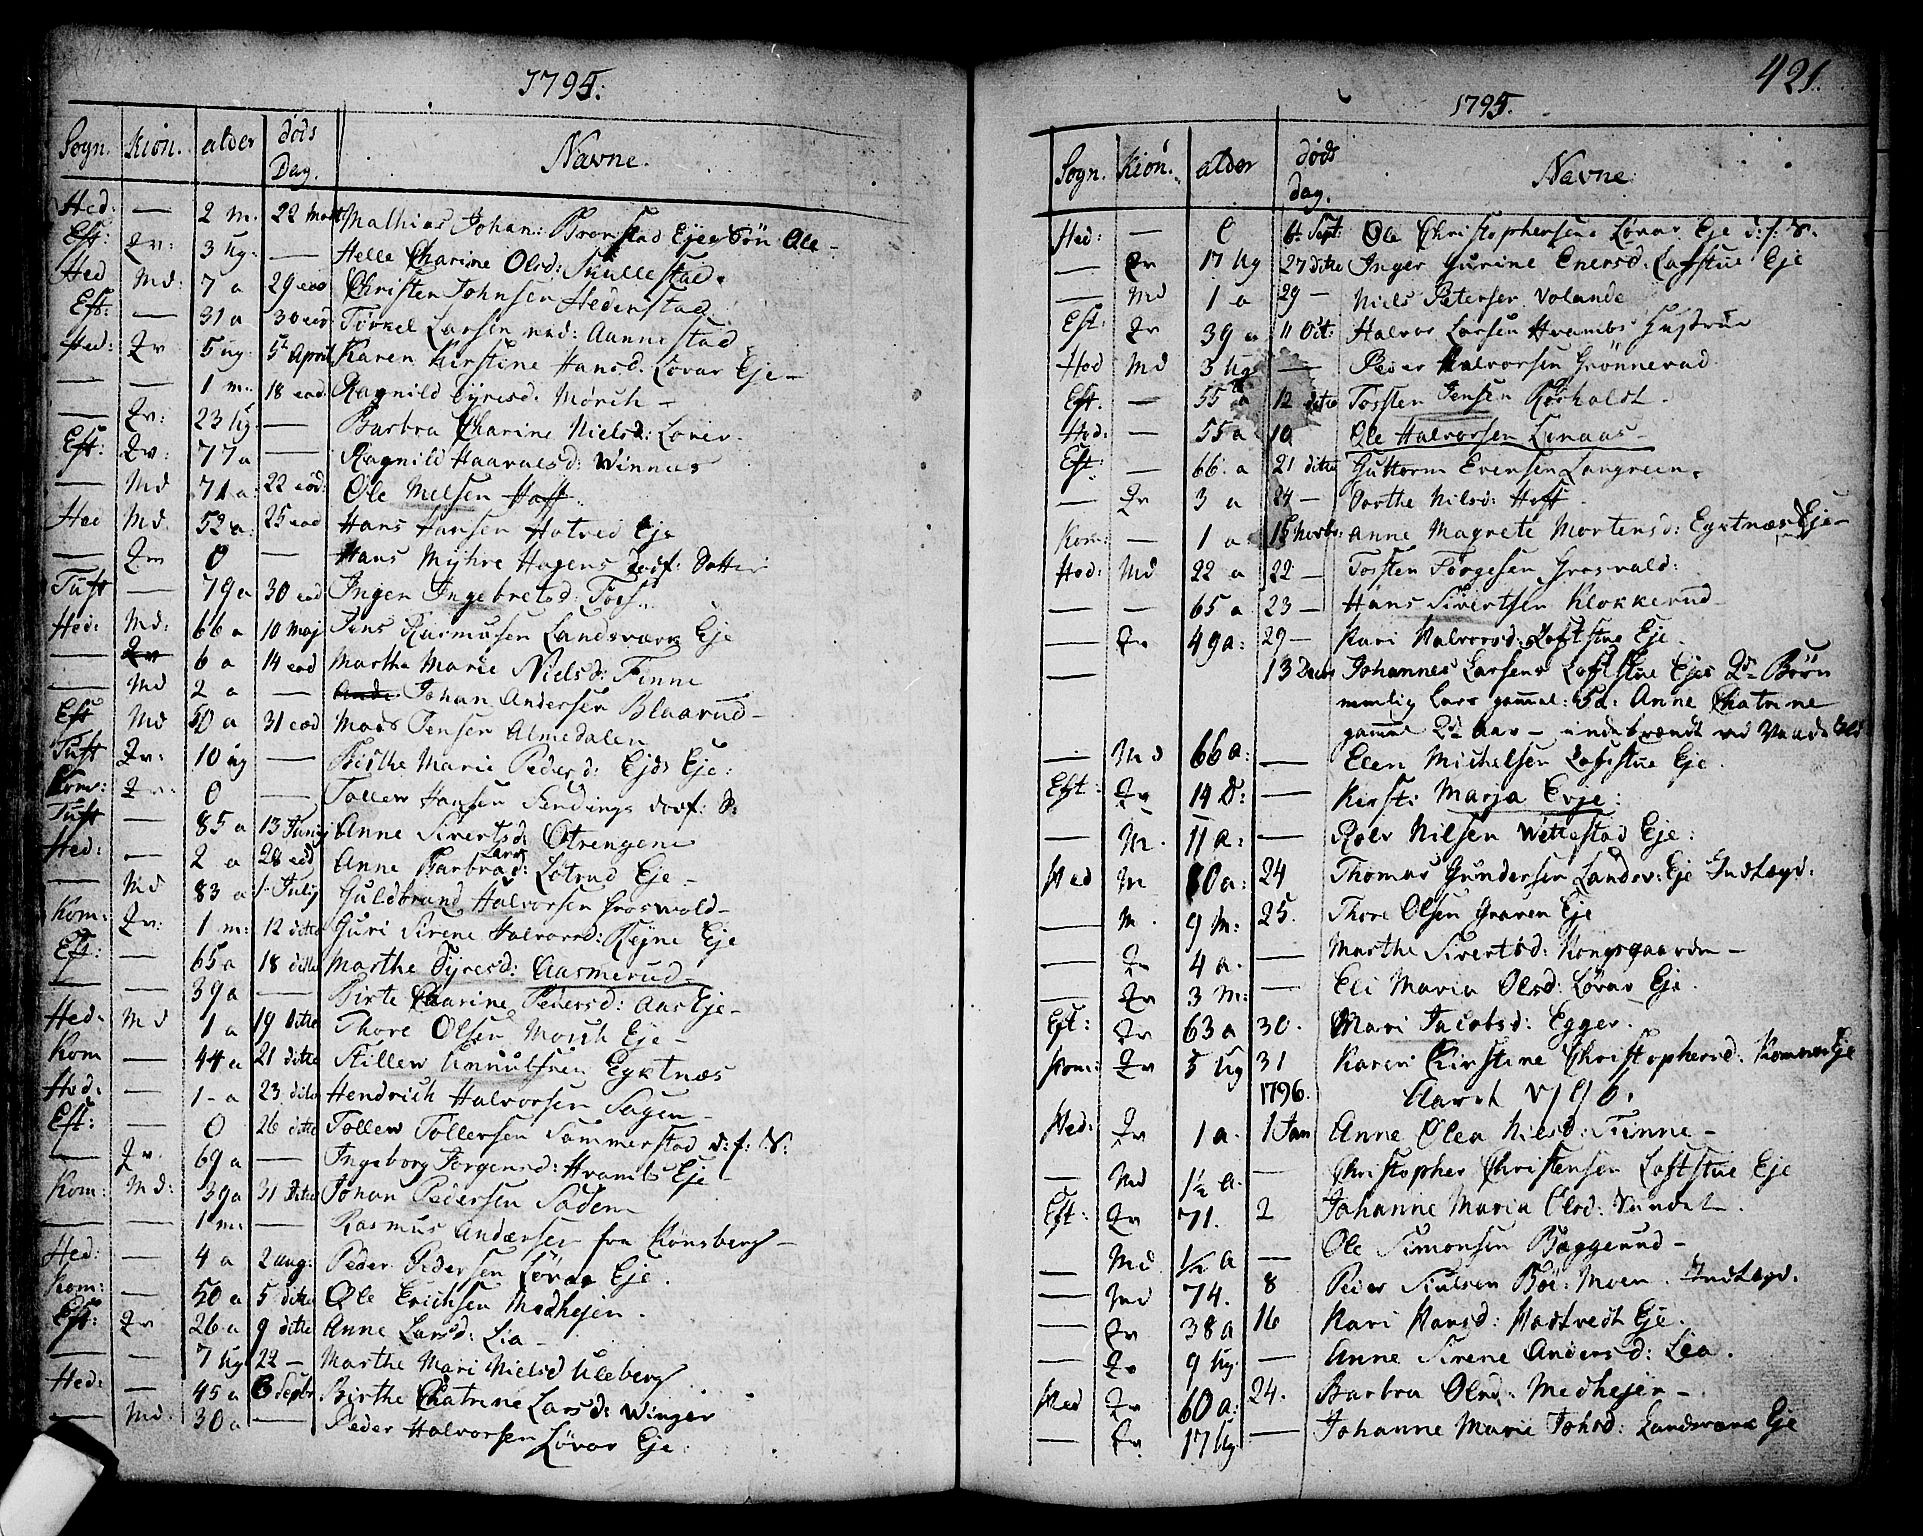 1795.
Sogn. Kiön. alder döds Dag. Navne.
Hed: — 2 m. 22 Mart Mathias Johan: Bronstad Ejes Sön Ole —
Eft: Qv: 3 ug: — Helle Charine Olsd: Skullestad.
Hed Md: 7 a 29 eod Christen Johnsen Hedenstad
Eft: — 31 a 30 eod: Torkel Larsen Aannestad
Hed: Qv 5 ug: 5t April Karen Kirstine Hansd. Lövar Eje —
— — 1 m: 18 eod Ragnild Syresd: Mörch —
— Qv: 23 ug: — Barbra Charine Nielsd: Lover.
Eft: Qv: 77 a — Ragnild Haaralsd: Winnas
— Md 71 a: 22 eod: Ole Nielsen Hoff.
Hed Md. 52 a: 25 eod Hans Hansen Hotved Eje
— Qv 0 — Hans Myhre Hagens dödf: Dotter
Tuft — 79 a 30 eod Inger Ingebretsd: Foss.
Hed: Md: 66 a 10 Maj Jens Rasmusen Landsværk Eje
— Qv 6 a 14 eod Marthe Marie Nielsd: Finne
— Md 2 a — Johan Andersen Blaarud —
Eft Md 50 a 31 eod Mads Jensen Almedalen
Tuft Qv: 10 ug — Birthe Marie Pedersd: Ejds Eje:
Kom: Qv: 0 — Tollew Hansen Sendings dödf: D:
Tuft — 85 a 13 Junij Anne Sivertsd: Otrengene
Hed: — 2 a 28 eod Anne Barbra Larsd: Lotrud Eje —
— Md 83 a 1. Julij Guldbrand Halvorsen Groswold —
Kom: Qv: 1 m: 12 ditto Guri Sirene Halvorsd: Rejne Eje
Eft: — 65 a 18 ditto Marthe Syresd: Aasmerud —
— — 39 a — Birte Caarine Pedersd: Aas Eje —
Hed: Md 1 a 19 ditto Thore Olsen Morch Eje —
Kom — 44 a 21 ditto Stillew Eyktnæs
Hed: — 1 a 23 ditto Hendrich Halvorsen Sagen —
Eft: — 0 26 ditto Tollew Tollersen Sommerstad d: f: S:
— Qv. 69 a — Ingeborg Jorgensd: Hvambs Eje —
Kom: Md: 39 a 31 ditto Johan Pedersen Sadem
— — 1 m: — Rasmus Andersen fra Konsberg —
Hed: — 4 a 2 aug: Peder Pedersen Lövas Eje.
Kom: — 50 a 5 ditto Ole Erichsen Medhejen.
Eft: Qv 26 a 9 ditto Anne Larsd: Lia —
— — 7 ug 22 — Marthe Mari Nielsd Uleberg
Hed: — 45 a 6 Septbr Birthe Chatrine Larsd: Winger
— Md: 30 a — Peder Halvorsen Lövar Eje.
421.
1795.
Sogn. Kiön. alder döds dag. Navne
Hed: — 0 6t Sept: Ole Christophersens Lövas Eje d: f: S.
— Qv 17 ug 27 ditto Inger Gurine Enersd: Loftstue Eje
— Md 1 a 29 — Niels Petersen Volande
Eft: Qv 39 a 11 Oct: Halvor Larsen Hvambs Hustrue
Hed Md 3 ug — Peder Halvorsen Grönnerud
Eft. — 55 a 12 ditto Torsten Jensen Rörholdt.
Hed: — 55 a 10 Ole Halvorsen Lenaas —
Eft: — 66 a 21 ditto Guttorm Evensen Langreen.
— Qv 3 a 24 — Dorthe Nilsd: Hoff
Kom: — 1 a 15 Novbr: Anne Magrete Mortensd: Egktnæs Eje —
Hed: Md 22 a 22 — Torsten Torgesen Groswald:
— — 65 a 23 — Hans Sivertsen Klokkerud —
— Qv 49 a: 29 — Kari Halvorsd: Loftstue Eje.
— 13 Decbr Johannes Larsens Loftstue Ejes 2de Börn
nemlig Lars gammel: 5 a: Anne Chatrine
gammel 2de Aar — indebrændt ved Vaade Ild
— Md 66 a: — Elen Michelsen Loftstue Eje.
Eft: Qv 14 D: — Kirsti Marja Evje:
— M. 11 a: — Rolv Nilsen Wettestad Eje:
Hed M 80 a: 24 Thomas Gundersen Landsv: Eje Indlægd.
— M. 9 M: 25. Thore Olsen Graven Eje
— Qv 4 a. — Marthe Sivertsd: Kongsgaarden —
— Qv 3 M: — Eli Maria Olsd: Lövar Eje.
Eft: Qv 63 a 30. Mari Jacobsd: Egger.
Kom: Qv 5 ug 31 Karen Chirstine Christophersd: Komnes Eje
1796. Aaret 1796.
Hed: Qv 1 a. 1 Jan Anne Olea Nilsd: Finne —
— Md 1½ a. — Christopher Christensen Loftstue Eje
Eft: Qv 71. 2 Johanne Maria Olsd: Sundet —.
— Md ½ a — Ole Simonsen Baggerud —
— Md 74. 8 Peder Moen. Indlægd.
— Qv 38 a 16 Kari Hansd: Hostvedt Eje.
— Qv 9 ug. — Anne Sirene Andersd: Lea.
Hed Qv 60 a: 24. Barbra Olsd: Medhejen —
— Qv 17 ug — Johanne Marie Johsd: Landsværk Eje